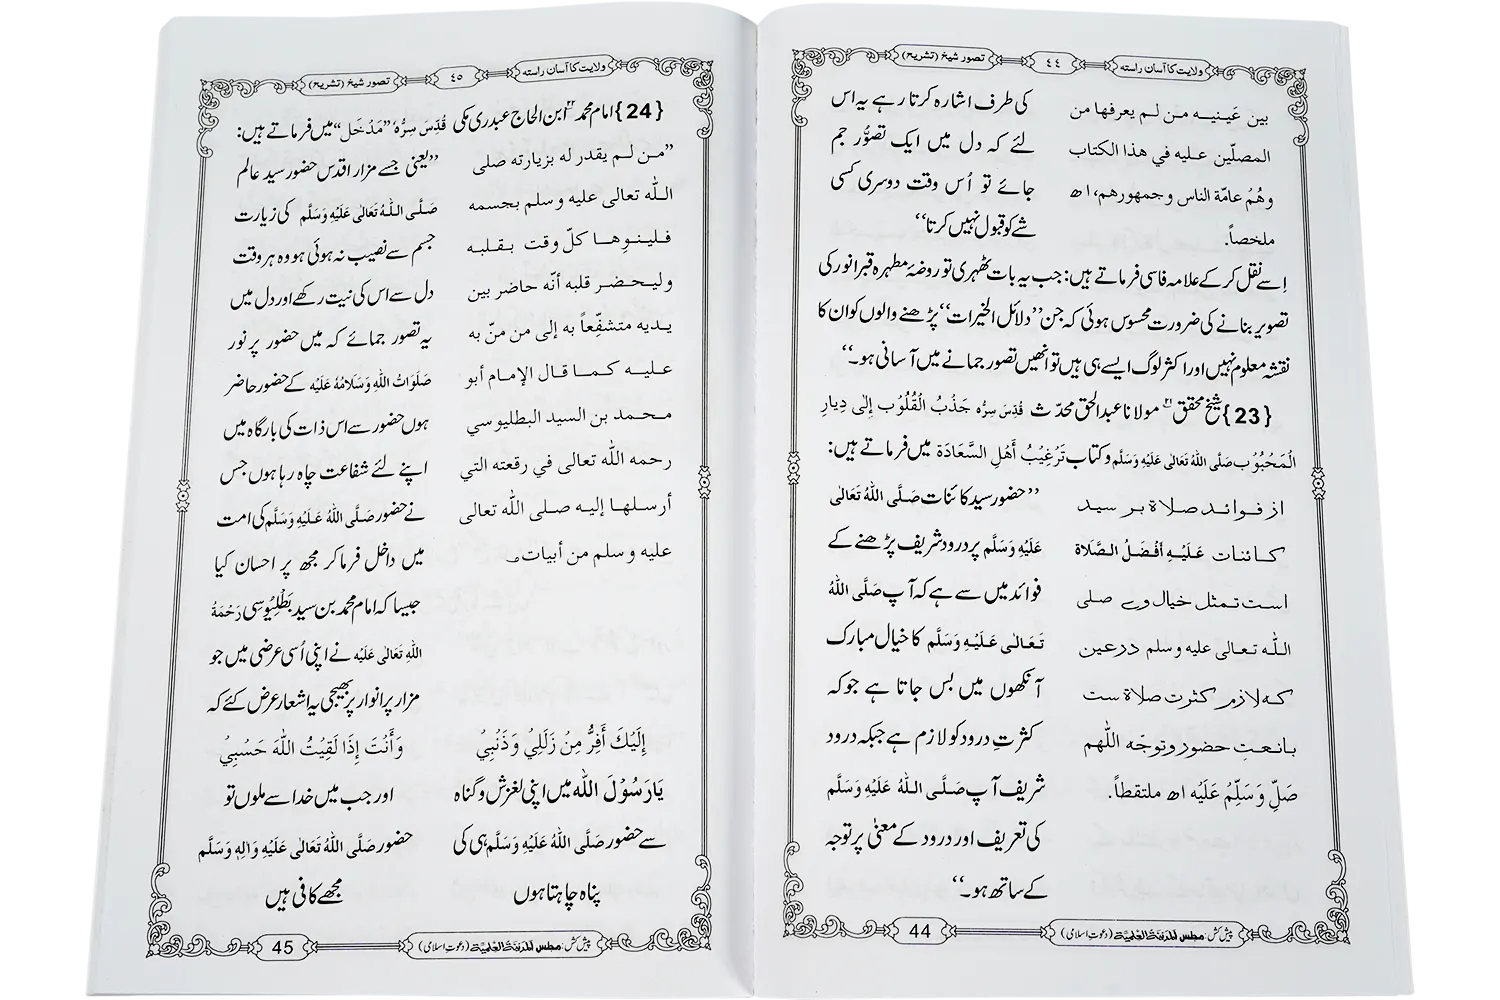 ولایت کا آسان راستہ
٤٤
تصور شیخ (تشریح)
بين عَينيـه مـن لـم يعرفها من
المصلّين عليه في هذا الكتاب
وهُمُ عامّة الناس وجمهورهم، اھ
ملخصاً.
کی طرف اشارہ کرتا رہے یہ اس
لئے کہ دل میں ایک تصوُّر جم
جائے تو اُس وقت دوسری کسی
شے کو قبول نہیں کرتا‘‘
اِسے نقل کر کے علامہ فاسی فرماتے ہیں: جب یہ بات ٹھہری تو روضۂ مطہرہ قبر انور کی
تصویر بنانے کی ضرورت محسوس ہوئی کہ جن ’’دلائل الخیرات‘‘ پڑھنے والوں کو ان کا
نقشہ معلوم نہیں اور اکثر لوگ ایسے ہی ہیں تو انھیں تصور جمانے میں آسانی ہو۔‘‘
{23} شیخ محقق مولانا عبدالحق محدّث قُدِّسَ سِرُّہ جَذْبُ الْقُلُوْب إِلٰی دِیارِ
الْمَحْبُوْب صَلَّی اللّٰہُ تَعَالٰی عَلَیْہِ وَسَلَّم و کتاب تَرْغِیْبُ أَھْلِ السَّعَادَۃ میں فرماتے ہیں:
از فـوائـد صـلاۃ بـر سیـد
کـائنات عَـلَيْـهِ أفْضَـلُ الصَّلَاة
اسـت تـمثل خیال وے صلی
اللّٰـه تـعـالى عليه وسلم در عین
کـه لازمِ کثرت صلاۃ ست
بـا نعـتِ حضور و توجّه اللّٰهم
صَلِّ وَ سَلِّمْ عَلَيْه اھ ملتقطاً.
’’حضور سید کائنات صَلَّی اللّٰہُ تَعَالٰی
عَلَیْہِ وَسَلَّم پر درود شریف پڑھنے کے
فوائد میں سے ہے کہ آپ صَلَّی اللّٰہُ
تَعَالٰی عَلَیْہِ وَسَلَّم کا خیال مبارک
آنکھوں میں بس جاتا ہے جو کہ
کثرتِ درود کو لازم ہے جبکہ درود
شریف آپ صَلَّی اللّٰہُ عَلَیْہِ وَسَلَّم
کی تعریف اور درود کے معنیٰ پر توجہ
کے ساتھ ہو۔‘‘
پیش کش: مجلس المدینۃ العلمیۃ (دعوتِ اسلامی)
44
ولایت کا آسان راستہ
٤٥
تصور شیخ (تشریح)
{24} امام محمد ابن الحاج عبدری مکی قُدِّسَ سِرُّہٗ ’’مَدْخَل‘‘ میں فرماتے ہیں:
’’مـن لـم يقدر له بزيارته صلى
اللّٰه تعالى عليه وسلم بجسمه
فـليـنوِهـا كلّ وقت بـقـلبه
وليـحضـر قلبه أنّه حاضر بين
يـديه متشفّعاً به إلى من منّ به
عليـه كـمـا قال الإمام أبو
محـمد بن السيد البطليوسي
رحمه اللّٰه تعالى في رقعته التي
أرسلها إليه صلى اللّٰه تعالى
عليه وسلم من أبيات
’’یعنی جسے مزار اقدس حضور سید عالم
صَلَّی اللّٰہُ تَعَالٰی عَلَیْہِ وَسَلَّم کی زیارت
جسم سے نصیب نہ ہوئی ہو وہ ہر وقت
دل سے اس کی نیت رکھے اور دل میں
یہ تصور جمائے کہ میں حضور پر نور
صَلَوَاتُ اللّٰہِ وَسَلَامُہٗ عَلَیْہ کے حضور حاضر
ہوں حضور سے اس ذات کی بارگاہ میں
اپنے لئے شفاعت چاہ رہا ہوں جس
نے حضور صَلَّی اللّٰہُ عَلَیْہِ وَسَلَّم کی امت
میں داخل فرما کر مجھ پر احسان کیا
جیسا کہ امام محمد بن سید بَطْلِیُوسِی رَحْمَۃُ
اللّٰہِ تَعَالٰی عَلَیْہ نے اپنی اُسی عرضی میں جو
مزار پر انوار پر بھیجی یہ اشعار عرض کئے کہ
إِلَيْكَ أَفِرُّ مِنْ زَلَلِيْ وَذَنْبِيْ وَأَنْتَ إِذَا لَقِيْتُ اللّٰهَ حَسْبِيْ
یَارَسُوْلَ اللّٰہ میں اپنی لغزش و گناہ اور جب میں خدا سے ملوں تو
سے حضور صَلَّی اللّٰہُ عَلَیْہِ وَسَلَّم ہی کی حضور صَلَّی اللّٰہُ تَعَالٰی عَلَیْہِ وَاٰلِہٖ وَسَلَّم
پناہ چاہتا ہوں مجھے کافی ہیں
پیش کش: مجلس المدینۃ العلمیۃ (دعوتِ اسلامی)
45